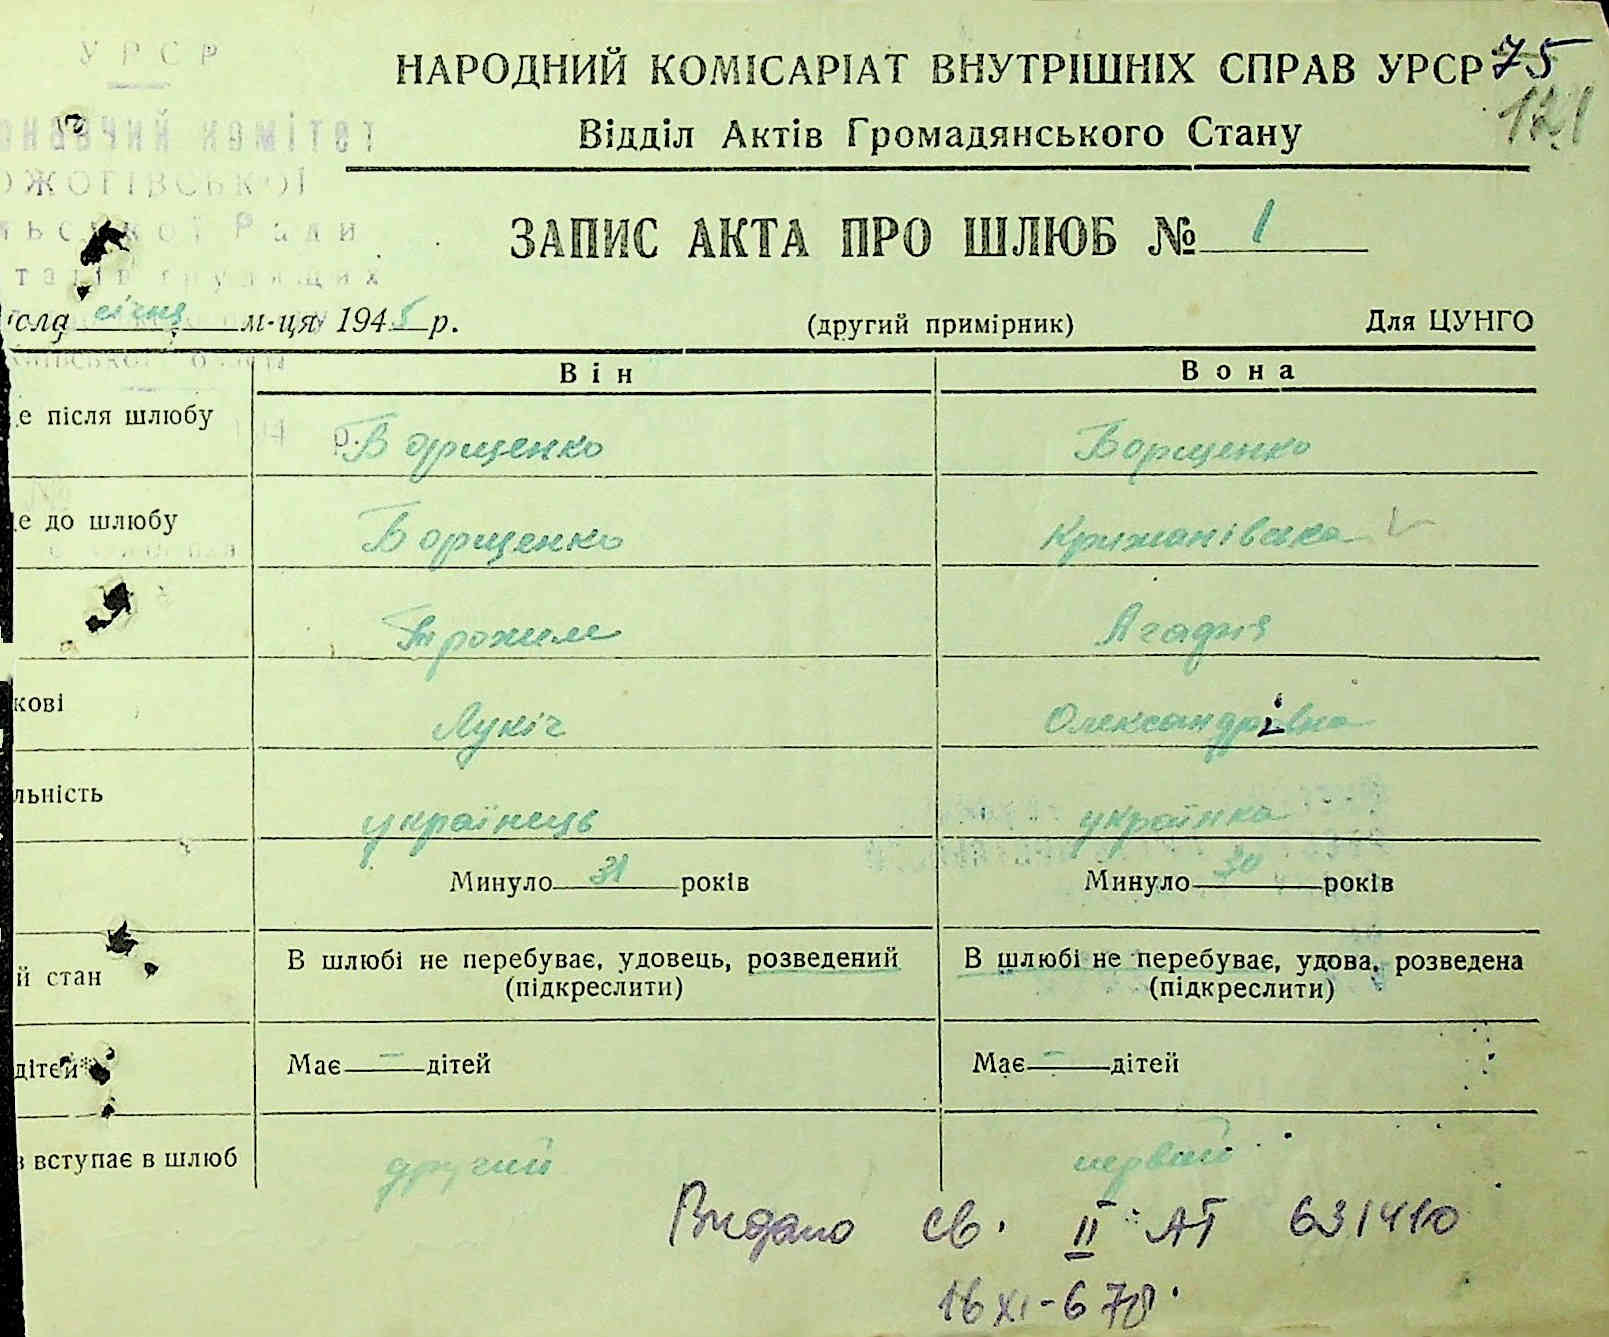 УРСР
НАРОДНИЙ КОМІСАРІАТ ВНУТРІШНІХ СПРАВ УРСР 75
Відділ Актів Громадянського Стану 121
комітет
Ради
ЗАПИС АКТА ПРО ШЛЮБ № 1
січня м-ця 1945 р. (другий примірник) Для ЦУНГО
Він Вона
після шлюбу Борщенко Борщенко
до шлюбу Борщенко Крижанівська
Трохим Агафия
кові Лукіч Олександрівна
льність українець українка
Минуло 31 років Минуло 30 років
й стан В шлюбі не перебуває, удовець, розведений В шлюбі не перебуває, удова, розведена
(підкреслити) (підкреслити)
дітей Має — дітей Має — дітей
вступає в шлюб другий первий
Видано св. II АТ 631410
16 XI-67р.